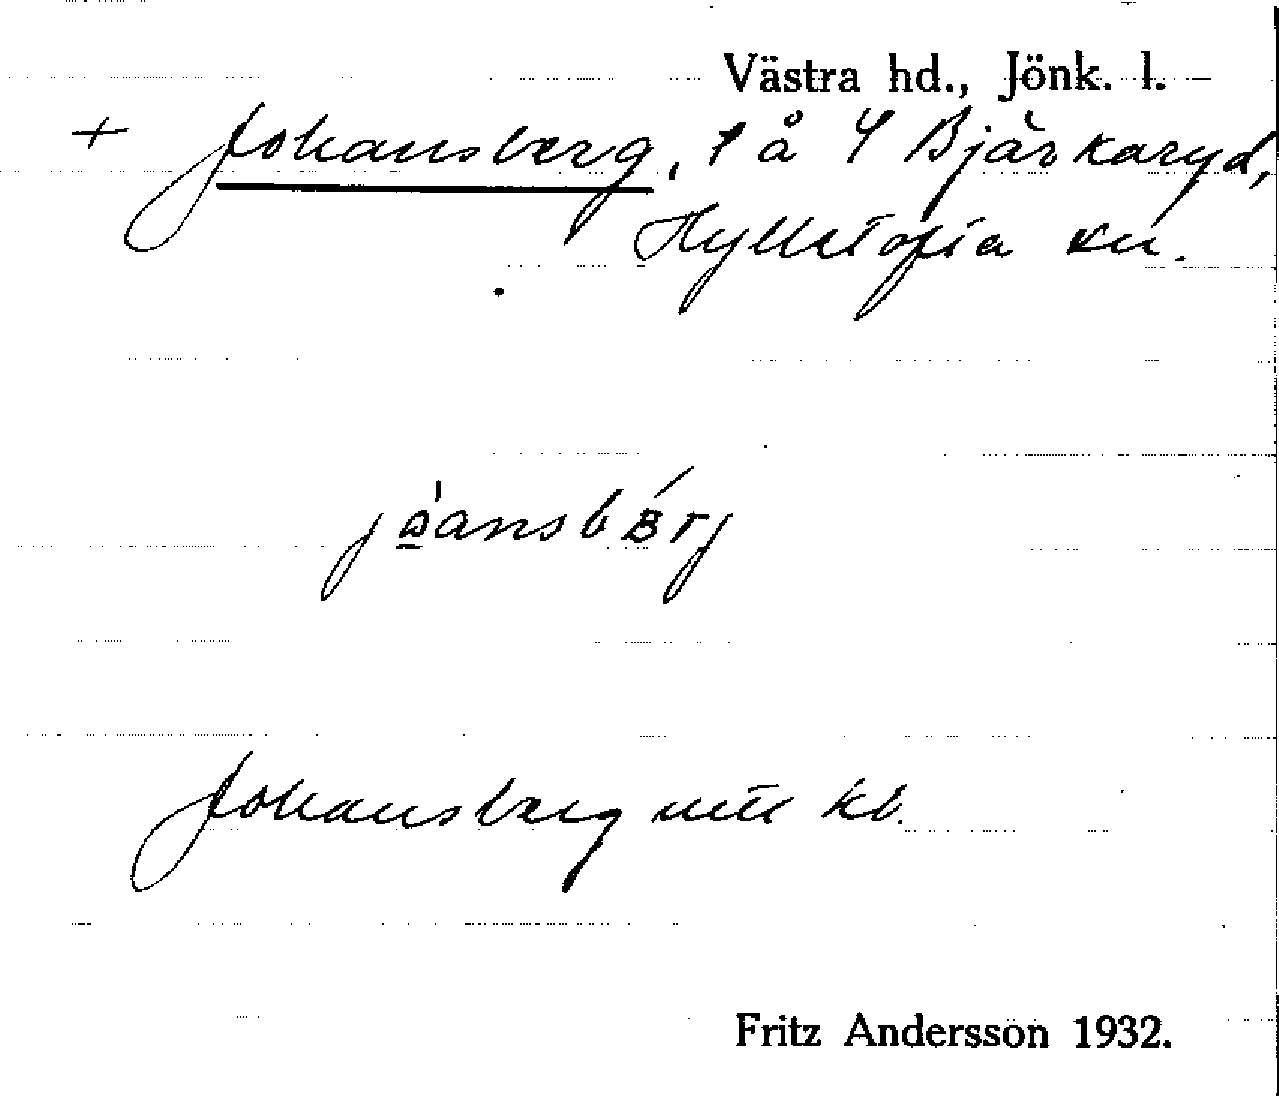 Västra hd., Jönk. l.
+ Johansberg, t å 4 Bjärkaryd,
Hylletofta sn.
Johansberg mtl kb.
Fritz Andersson 1932.